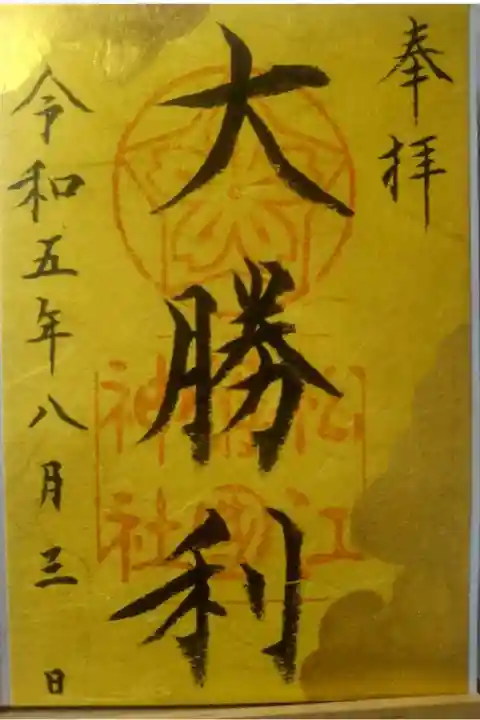 奉拝
大勝利
松江
護國
神社
令和五年八月三日